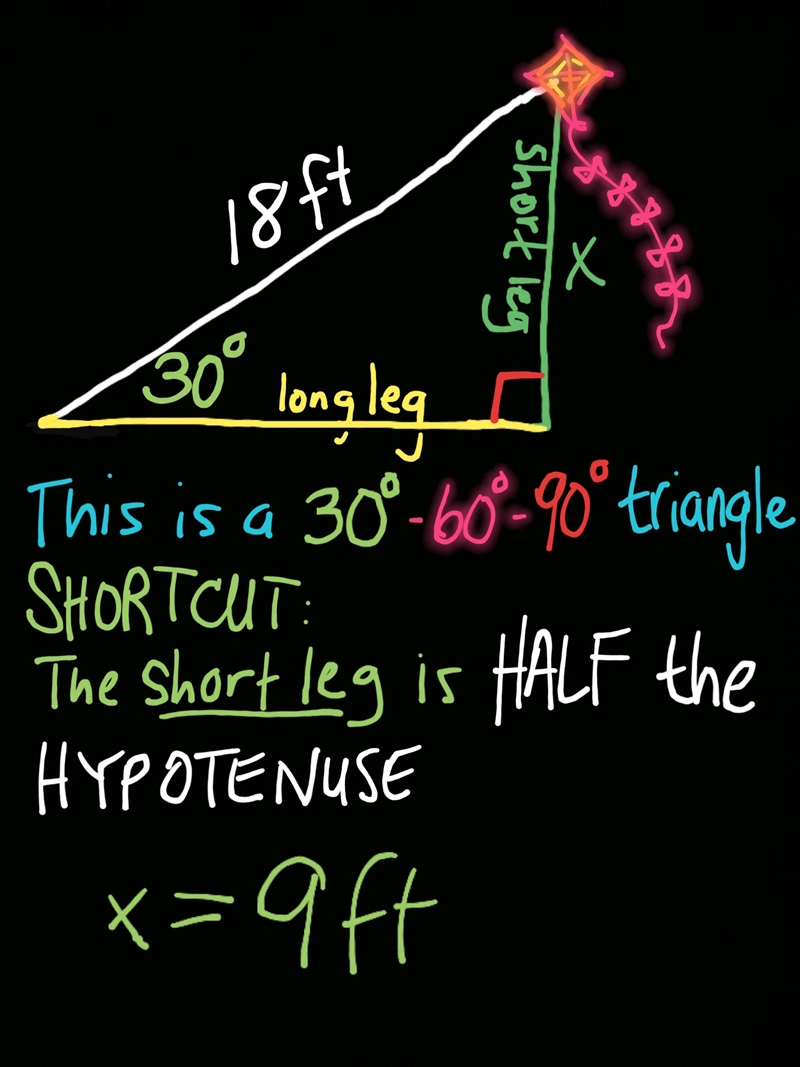 18ft
short leg
x
30°
long leg
This is a 30°-60°-90° triangle
SHORTCUT:
The short leg is HALF the
HYPOTENUSE
x = 9ft